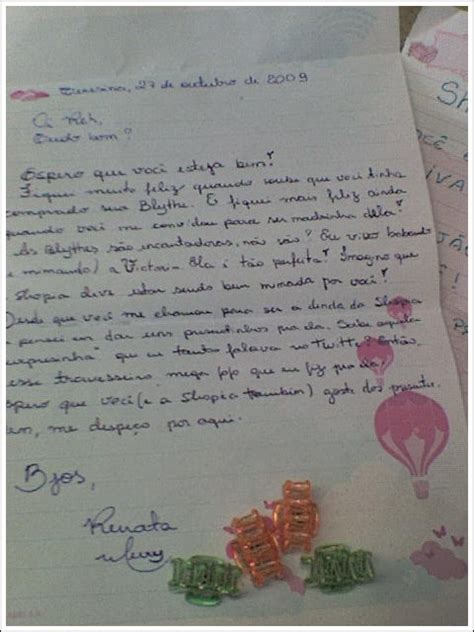 Teresina, 27 de outubro de 2009
Oi Reh,
Tudo bom?
Espero que você esteja bem!
Fiquei muito feliz quando soube que você tinha
comprado sua Blythe. E fiquei mais feliz ainda
quando você me convidou para ser madrinha dela!
As Blythes são encantadoras, não são? Eu vivo babando
e mimando) a Victoria. Ela é tão perfeita! Imagino que
Shopia deve estar sendo bem mimada por você!
Desde que você me chamou para ser a dinda da Shopia
pensei em dar uns presentinhos pra ela. Sabe aquela
que eu tanto falava no Twitter? Então,
esse travesseiro mega fofo que eu fiz pra ela!
espero que você (e a Shopia também) goste dos presentes.
me despeço por aqui.
Bjos,
Renata
SH
OCÊ
IVA
JÃO